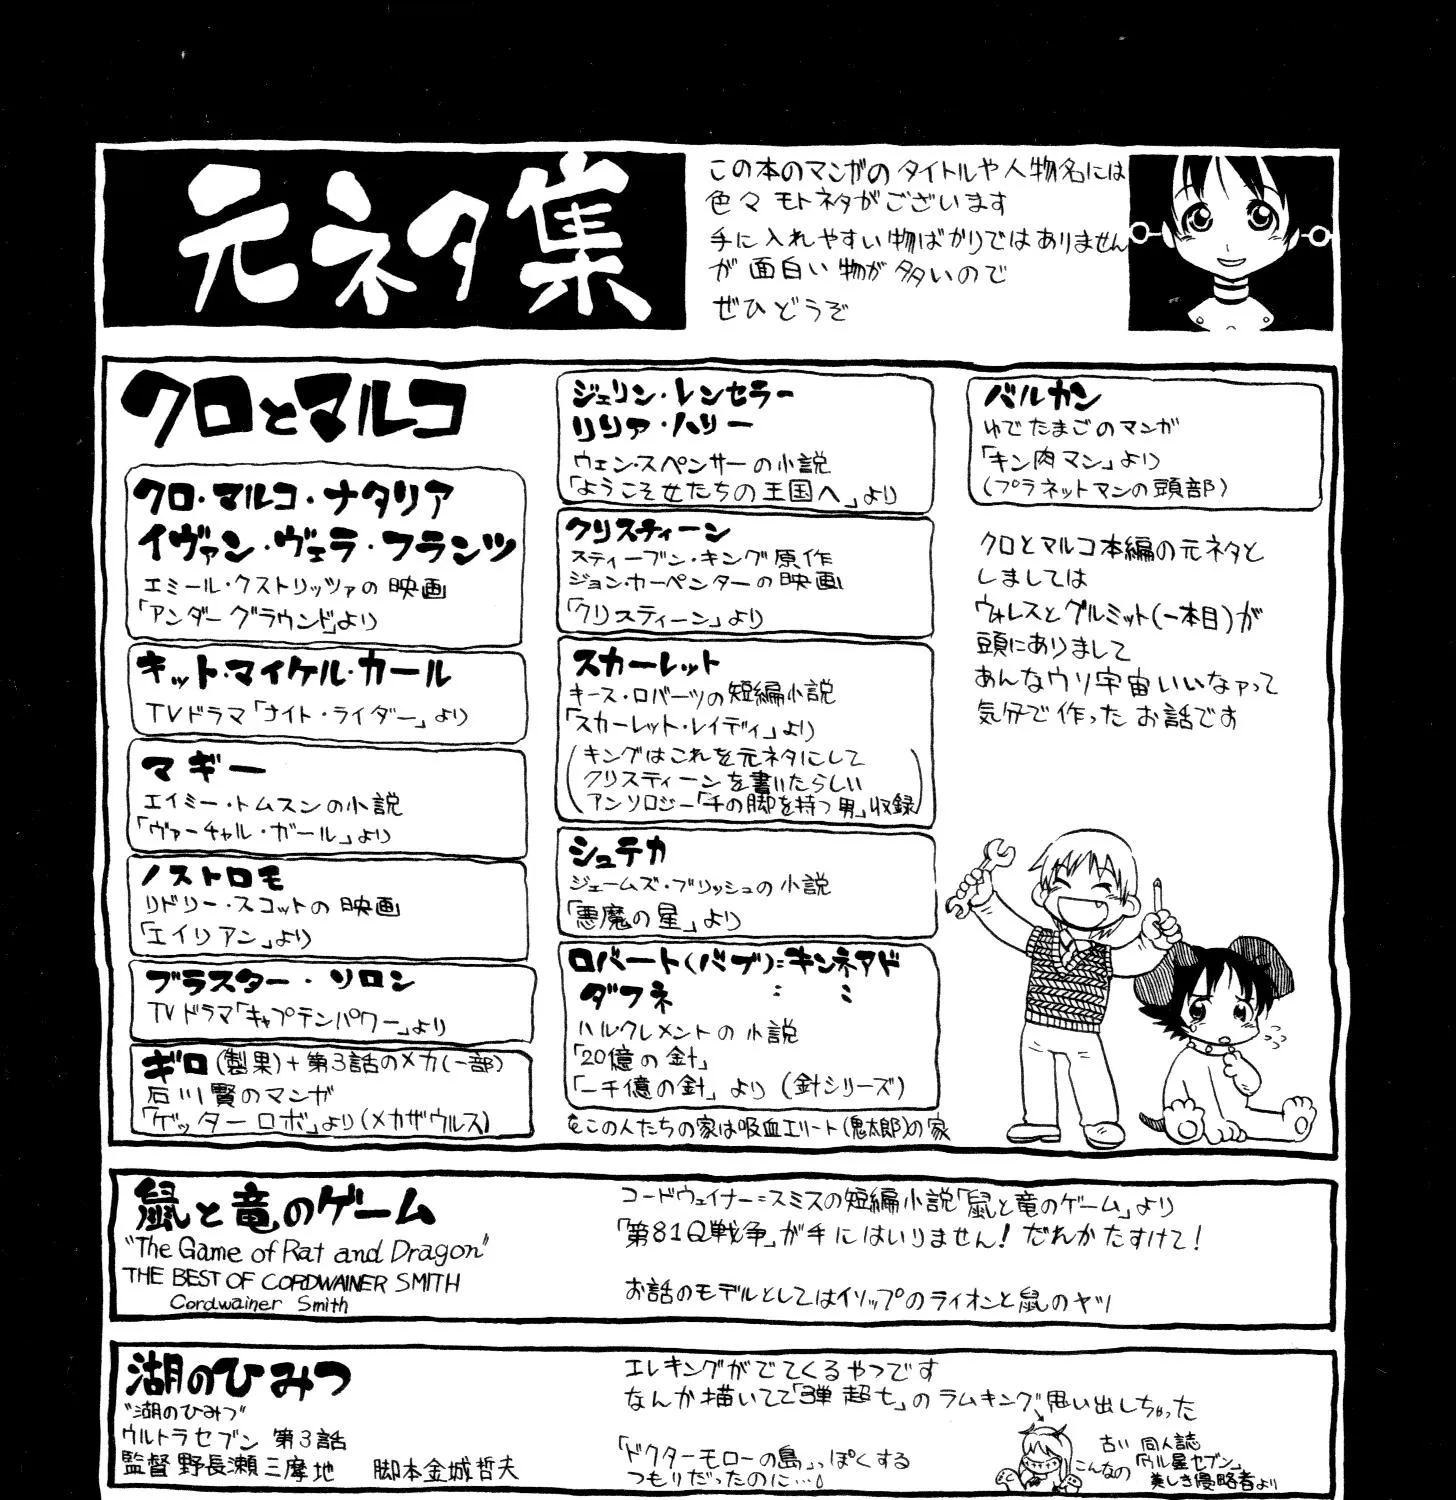 元ネタ集
この本のマンガのタイトルや人物名には
色々モトネタがございます
手に入れやすい物ばかりではありません
が面白い物が多いので
ぜひどうぞ
クロとマルコ
クロ・マルコ・ナタリア
イヴァン・ヴェラ・フランツ
エミール・クストリッツァの映画
「アンダーグラウンド」より
キット・マイケル・カール
TVドラマ「ナイト・ライダー」より
マギー
エイミー・トムスンの小説
「ヴァーチャル・ガール」より
ノストロモ
リドリー・スコットの映画
「エイリアン」より
ブラスター・ソロン
TVドラマ「キャプテンパワー」より
ギロ(製果)+第3話のメカ(一部)
石川賢のマンガ
「ゲッターロボ」より(メカザウルス)
ジェリン・レンセラー
リリア・ハリー
ウェン・スペンサーの小説
「ようこそ女たちの王国へ」より
クリスティーン
スティーブン・キング原作
ジョン・カーペンターの映画
「クリスティーン」より
スカーレット
キース・ロバーツの短編小説
「スカーレット・レイディ」より
(キングはこれを元ネタにして
クリスティーンを書いたらしい
アンソロジー「千の脚を持つ男」収録)
シュテカ
ジェームズ・ブリッシュの小説
「悪魔の星」より
ロバート(バブ)=キンネアド
ダフネ = ミ
ハルクレメントの小説
「20億の針」
「一千億の針」より(針シリーズ)
↑この人たちの家は吸血エリート(鬼太郎)の家
バルカン
ゆでたまごのマンガ
「キン肉マン」より
(プラネットマンの頭部)
クロとマルコ本編の元ネタと
しましては
ウォレスとグルミット(一本目)が
頭にありまして
あんなウソ宇宙いいなァって
気分で作ったお話です
鼠と竜のゲーム
"The Game of Rat and Dragon"
THE BEST OF CORDWAINER SMITH
Cordwainer Smith
コードウェイナー=スミスの短編小説「鼠と竜のゲーム」より
「第81Q戦争」が手にはいりません!だれかたすけて!
お話のモデルとしてはイソップのライオンと鼠のヤツ
湖のひみつ
"湖のひみつ"
ウルトラセブン 第3話
監督 野長瀬三摩地 脚本金城哲夫
エレキングがでてくるやつです
なんか描いてて「3弾 超七」のラムキング思い出しちゃった
「ドクターモローの島」っぽくする
つもりだったのに…。
古い 同人誌
こんなの「ウル星セブン」
美しき侵略者より